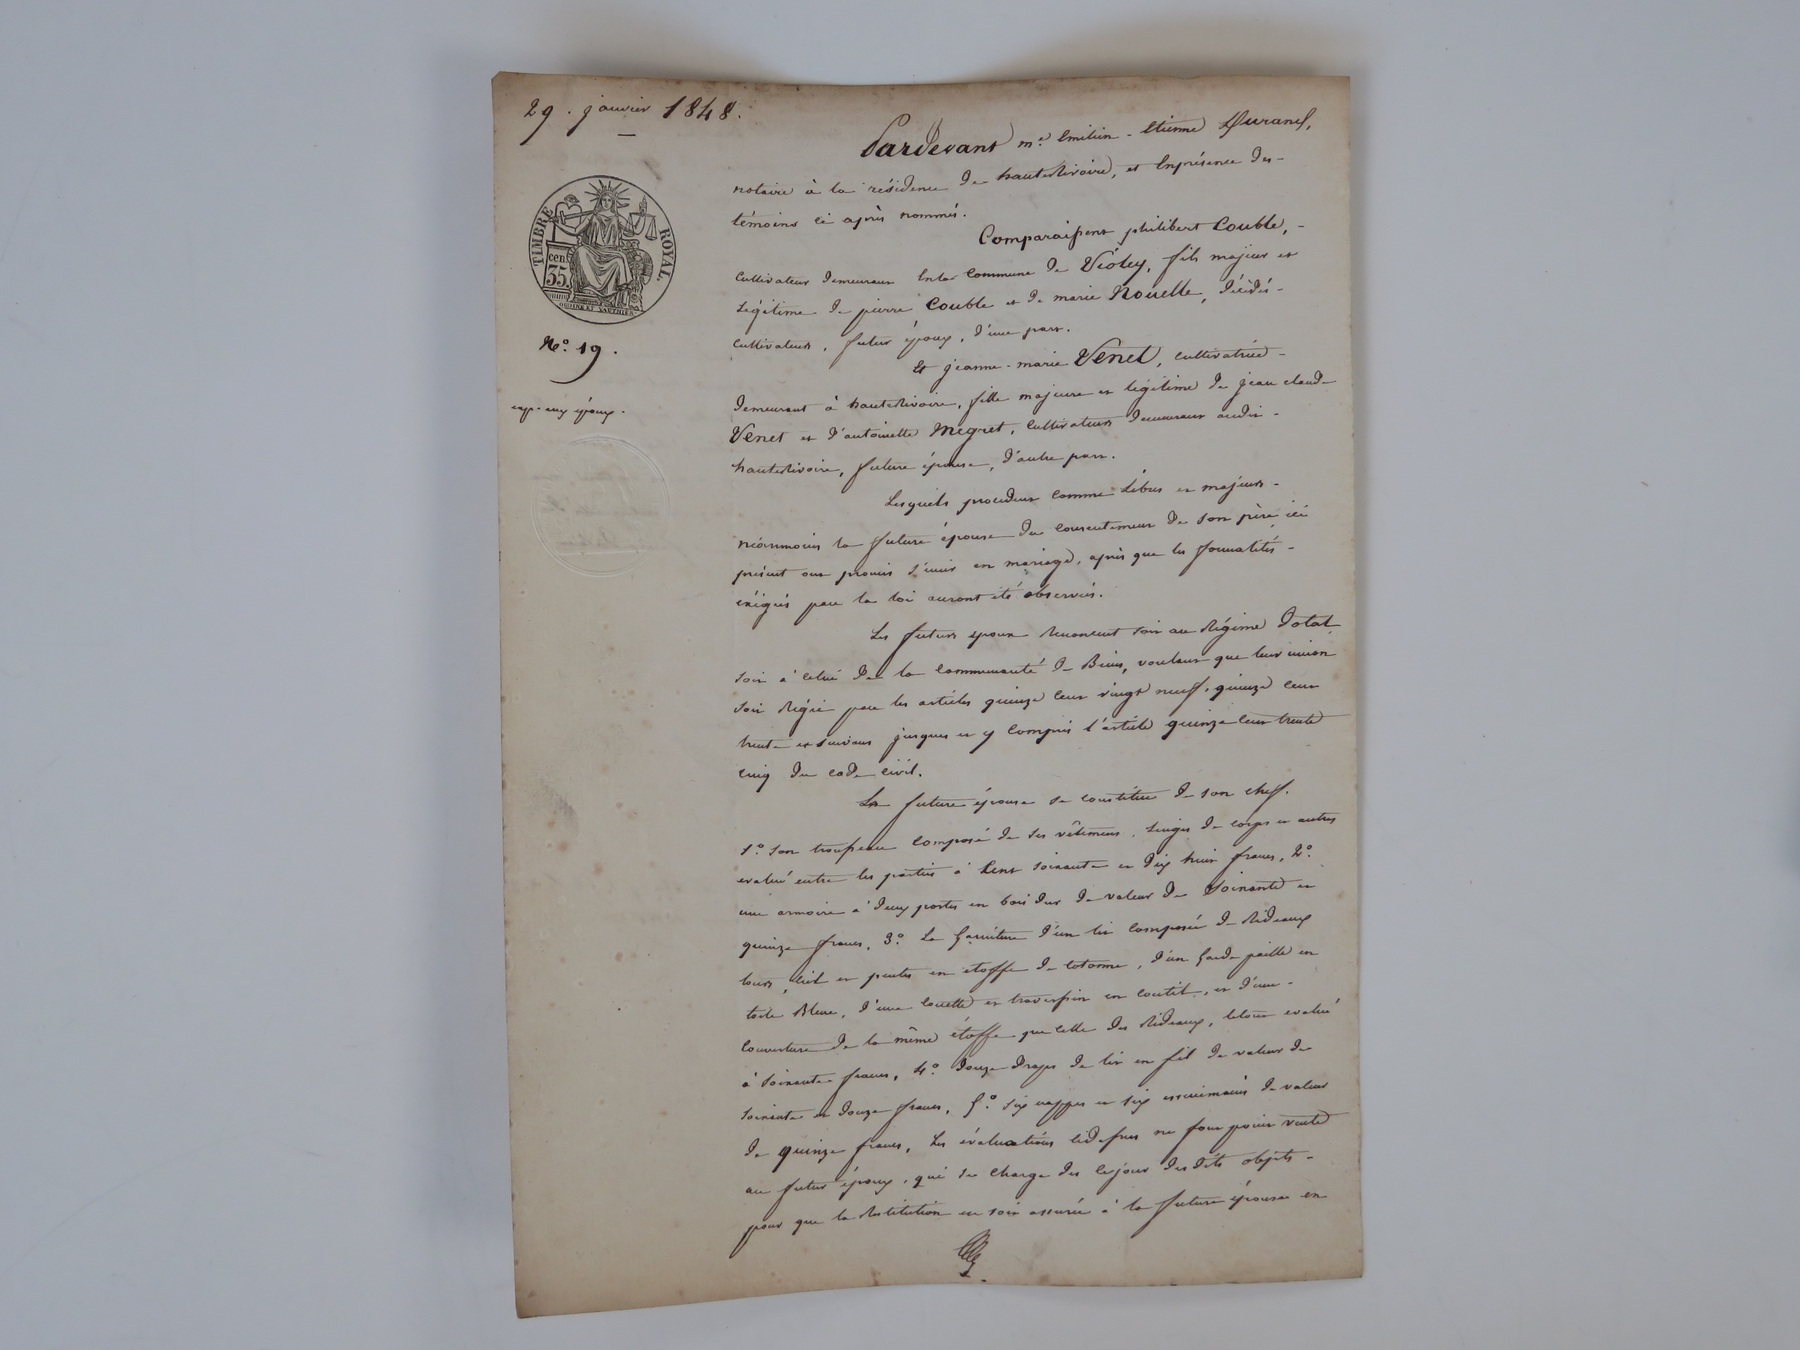 29. janvier 1848.
Pardevant me. Emilien-Etienne Durand,
notaire à la résidence de hauterivoire, et Enprésence des
témoins ci après nommés.
Comparaissent philibert Couble,
TIMBRE ROYAL
cen. 35.
cultivateur demeurant Enla Commune de Violey, fils majeur et
Légitime de pierre Couble et de marie Nouelle, décédés
cultivateurs, futur époux, d'une part.
No. 19.
Et jeanne-marie Venet, cultivatrice
exp. aux époux.
demeurant à hauterivoire, fille majeure et légitime de jean claude
Venet et d'antoinette Megret, cultivateurs demeurant audit
hauterivoire, future épouse, d'autre part.
Lesquels procédant comme Libres et majeurs
néanmoins la future épouse du consentement de son père ici
présent ont promis s'unir en mariage, après que les formalités
exigées par la loi auront été observées.
Les futurs époux renoncent soit au Régime Dotal
soit à celui de la communauté de Biens, voulant que leur union
soit régie par les articles quinze cent vingt neuf, quinze cent
trente et suivans jusques et y compris l'article quinze cent trente
cinq du code civil.
La future épouse se constitue de son chef.
1o. son trousseau composé de ses vêtemens, linges de corps et autres
evalué entre les parties à Cent soixante et dix huit francs, 2o.
une armoire à deux portes en bois dur de valeur de Soixante et
quinze francs, 3o. La Garniture d'un lit composée de Rideaux
tours, ciel et pentes en étoffe de cotonne, d'un Garde paille en
toile Bleue, d'une couette et traversin en coutil, et d'une
couverture de la même étoffe que celle des Rideaux, letout evalué
à soixante francs, 4o. douze draps de lit en fil de valeur de
soixante et douze francs, 5o. six nappes et six essuiemains de valeur
de quinze francs, Les évaluations cidessus ne font point vente
au futur époux, qui se charge dès cejour desdits objets
pour que la Restitution en soit assurée à la future épouse en